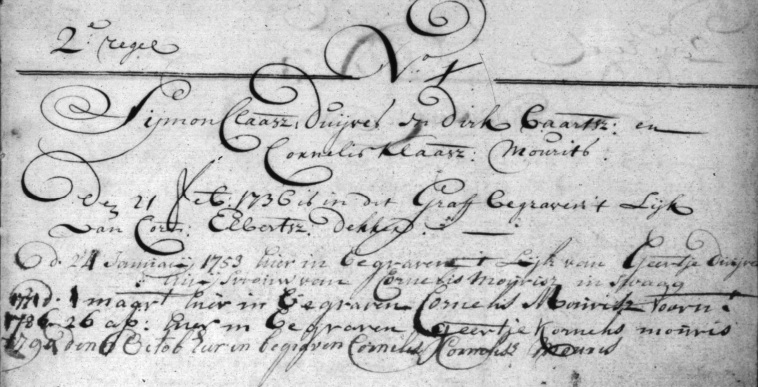 2e regel
No 1
Sijmon Claasz Duijves En Dirk Baartsz: en
Cornelis Klaasz: Mourits
Den 21 Feb: 1736 is in dit Graff begraven 't Lijk
van Corn: Elbertsz. Dekker
d 24 Januarij 1753 hier in begraven 't Lijk van Geertje Duijves
huijsvrouw van Cornelis Mourisz in
d. 1 maart hier in Begraven Cornelis Mourisz
1786 26 ap: hier in Begraven Geertje Kornelis mouris
den 6 octob hier in begraven Cornelis Cornelisz Mouris